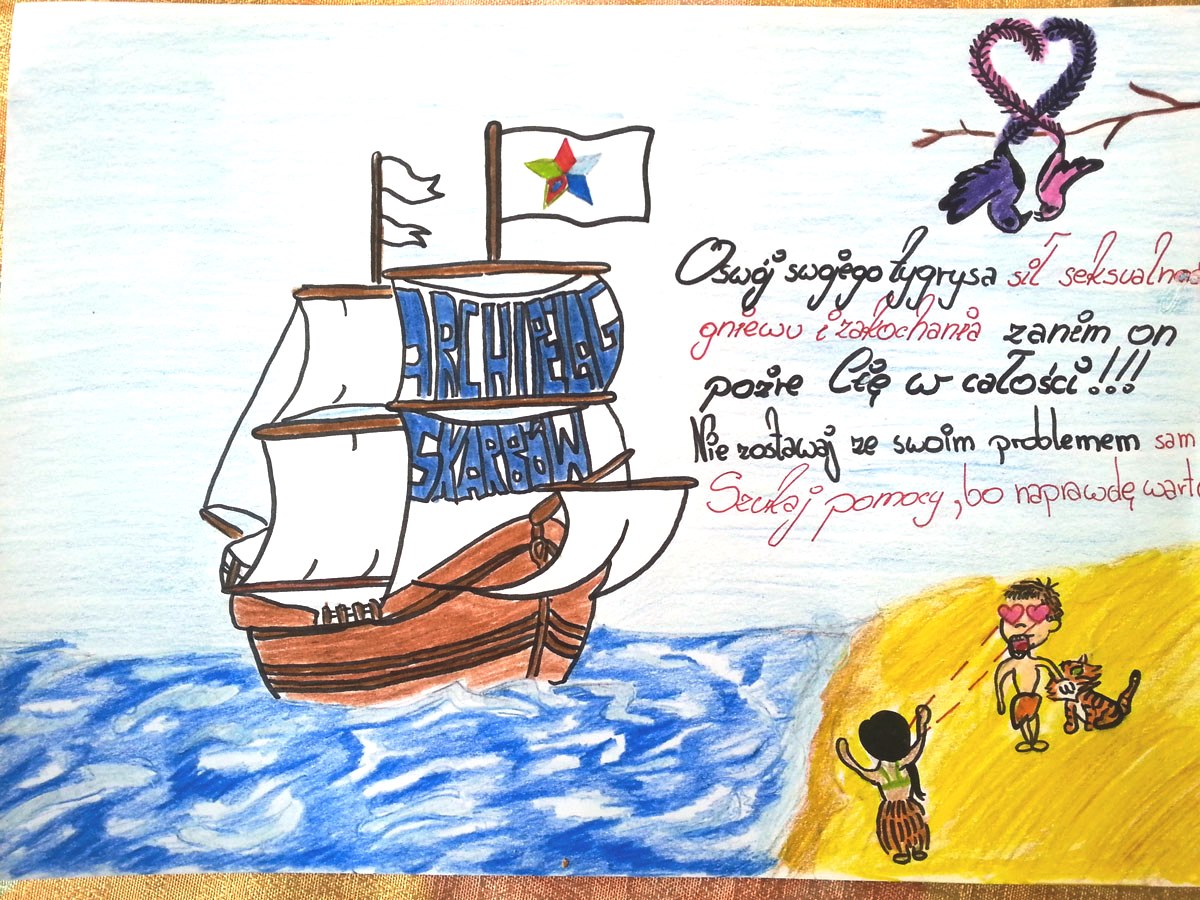 ARCHIPELAG
SKARBÓW
Oswój swojego tygrysa sił seksualnoś
gniewu i zakochania zanim on
pożre Cię w całości!!!
Nie zostawaj ze swoim problemem sam
Szukaj pomocy, bo naprawdę warto